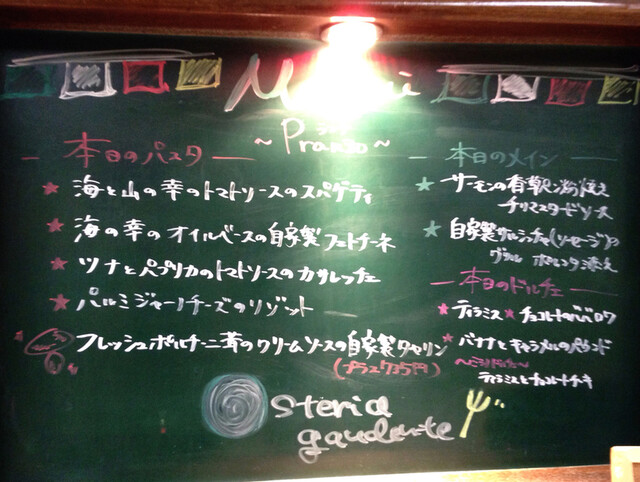 ~ Pranzo ~
本日のパスタ
海と山の幸のトマトソースのスパゲティ
海の幸のオイルベースの自家製フェトチーネ
ツナとパプリカのトマトソースのカサレッチェ
パルミジャーノチーズのリゾット
フレッシュポルチーニ茸のクリームソースの自家製タヤリン
本日のメイン
サーモンの香草パン粉焼き
チリマスタードソース
自家製サルシッチャ(ソーセージ)の
グリル ポレンタ添え
本日のドルチェ
ティラミス ★ チョコレートの
バナナとキャラメルのパウンド
ティラミスとチョコレートケーキ
steria
gaudente